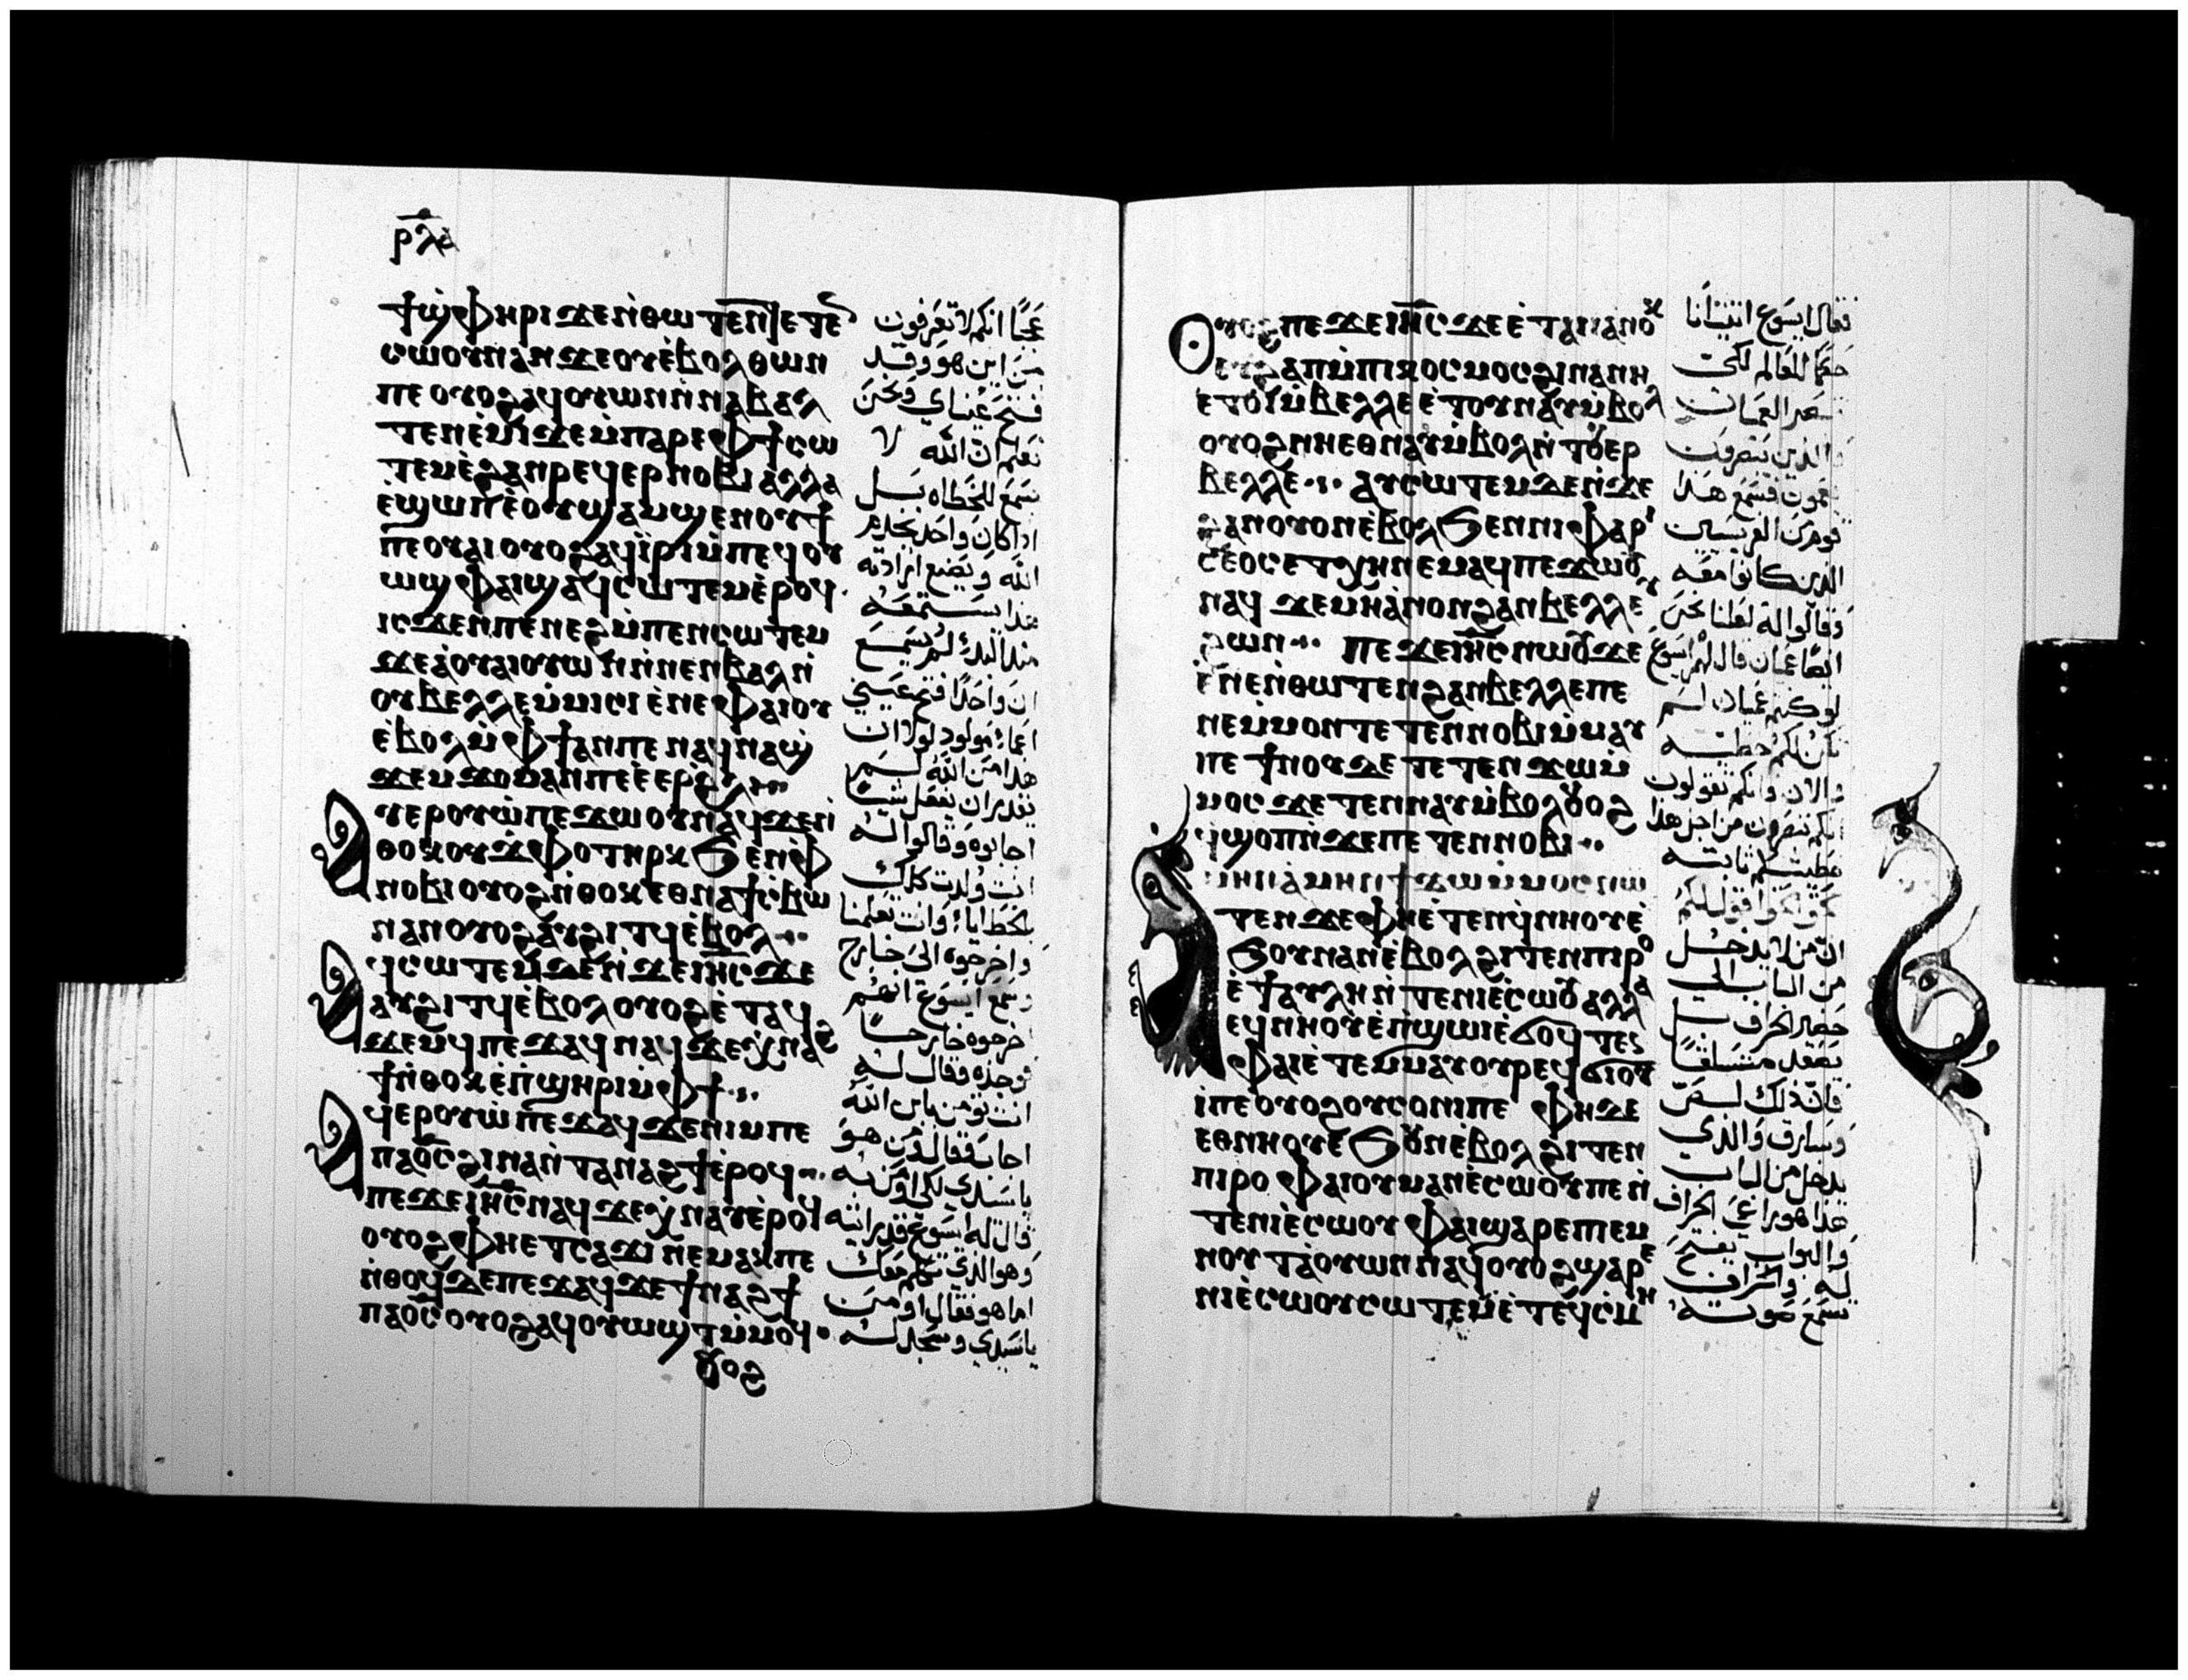 ⲣⲗⲁ
ϯϣⲫⲏⲣⲓ ϫⲉ ⲛ̇ⲑⲱⲧⲉⲛ ⲧⲉⲧⲉ
ⲥⲱⲟⲩⲛ ⲁⲛ ϫⲉ ⲟⲩⲉ̇ⲃⲟⲗ ⲑⲱⲛ
ⲡⲉ ⲟⲩⲟϩ ⲁϥⲟⲩⲱⲛ ⲛ̇ⲛⲁⲃⲁⲗ
ⲧⲉⲛⲉ̇ⲙⲓ ϫⲉ ⲙ̇ⲡⲁⲣⲉ ⲫϯ ⲥⲱ
ⲧⲉⲙ ⲉ̇ϩⲁⲛⲣⲉϥⲉⲣⲛⲟⲃⲓ ⲁ̇ⲗⲗⲁ
ⲉ̇ϣⲱⲡ ⲉ̇ⲟⲩϣⲁⲙϣⲉⲛⲟⲩϯ
ⲡⲉ ⲟⲩⲁⲓ ⲟⲩⲟϩ ⲁϥⲓ̇ⲣⲓ ⲙ̇ⲡⲉϥⲟⲩ
ⲱϣ ⲫⲁⲓ ϣⲁϥⲥⲱⲧⲉⲙ ⲉ̇ⲣⲟϥ
ⲓⲥϫⲉⲛ ⲡⲉⲛⲉϩ ⲙ̇ⲡⲉⲛⲥⲱⲧⲉⲙ
ϫⲉ ⲁ̇ ⲟⲩⲁⲓ ⲟⲩⲱⲛ ⲛ̇ⲛⲉⲛⲃⲁⲗ ⲛ̇
ⲟⲩⲃⲉⲗⲗⲉ ⲙ̇ⲙⲓⲥⲓ ⲉ̇ⲛⲉ ⲫⲁⲓ ⲟⲩ
ⲉ̇ⲃⲟⲗ ⲙ̇ⲫϯ ⲁⲛ ⲡⲉ ⲛⲁϥⲛⲁϣ
ϫⲉⲙϫⲟⲙ ⲁⲛ ⲡⲉ ⲉ̇ⲉⲣϩⲗⲓ
ⲁⲩⲉⲣⲟⲩⲱ̇ ⲡⲉϫⲱⲟⲩ ⲛⲁϥ ϫⲉ ⲛ̇
ⲑⲟⲕ ⲟⲩϫⲫⲟ ⲧⲏⲣⲕ ϧⲉⲛ ⲫ
ⲛⲟⲃⲓ ⲟⲩⲟϩ ⲛ̇ⲑⲟⲕ ⲉⲑⲛⲁϯⲥ̇ⲃⲱ
ⲛⲁⲛ ⲟⲩⲟϩ ⲁⲩϩⲓⲧϥ ⲉ̇ⲃⲟⲗ
ⲁϥⲥⲱⲧⲉⲙ ϫⲉ ⲛ̇ϫⲉ ⲓⲏⲥ ϫⲉ
ⲁⲩϩⲓⲧϥ ⲉ̇ⲃⲟⲗ ⲟⲩⲟϩ ⲉ̇ⲧⲁϥ
ϫⲉⲙϥ ⲡⲉϫⲁϥ ⲛⲁϥ ϫⲉ ⲭ̇ⲛⲁϩ
ϯ ⲛ̇ⲑⲟⲕ ⲉ̇ⲡ̇ϣⲏⲣⲓ ⲙ̇ⲫϯ
ⲁϥⲉⲣⲟⲩⲱ̇ ⲡⲉϫⲁϥ ϫⲉ ⲛⲓⲙ ⲡⲉ
ⲡⲁⲟ̅ⲥ̅ ϩⲓⲛⲁ ⲛ̇ⲧⲁⲛⲁϩϯ ⲉ̇ⲣⲟϥ
ⲡⲉϫⲉ ⲓⲏ̅ⲥ̅ ⲛⲁϥ ϫⲉ ⲭ̇ⲛⲁⲩ ⲉ̇ⲣⲟϥ
ⲟⲩⲟϩ ⲫⲏ ⲉⲧⲥⲁϫⲓ ⲛⲉⲙⲁⲕ ⲡⲉ
ⲛ̇ⲑⲟϥ ϫⲉ ⲡⲉϫⲁϥ ϫⲉ ϯⲛⲁϩϯ
ⲡⲁⲟ̅ⲥ̅ ⲟⲩⲟϩ ⲁϥⲟⲩⲱϣⲧ ⲙ̇ⲙⲟϥ
ⲟⲩⲟϩ
عجبًا انكم لا تعرفون
من اين هو وقد
فتح عيناي ونحن
نعلم ان الله لا
يسمع للخطاه بـل
اذا كان واحد يخدم
الله ويصنع ارادته
هذا يستمعه
منذ البدء لم يسمع
ان واحدًا فتح عيني
اعماء مولود لولا ان
هذا من الله لـم
يقدر ان يفعل شيا
اجابوه وقالوا له
انت ولدت كلك
بالخطايا وانت تعلمنا
واخرجوه الى خارج
وسمع ايسوع انهم
اخرجوه خارجـا
فوجده فقال لـه
انت تومن بابن الله
اجاب فقال من هو
ياسيدي لكي اومن به
قال له ايسوع قد رايته
وهو الذي يتكلم معك
اما هو فقال اومن
ياسيدي وسجد لـه
ⲟⲩⲟϩ ⲡⲉϫⲉ ⲓⲏ̅ⲥ̅ ϫⲉ ⲉ̇ⲧⲁⲓⲓ̇ ⲁⲛⲟⲕ
ⲉⲩϩⲁⲡ ⲙ̇ⲡⲓⲕⲟⲥⲙⲟⲥ ϩⲓⲛⲁ ⲛⲏ
ⲉⲧⲟⲓ ⲙ̇ⲃⲉⲗⲗⲉ ⲉ̇ⲧⲟⲩⲛⲁⲩ ⲙ̇ⲃⲟⲗ
ⲟⲩⲟϩ ⲛⲏ ⲉⲑⲛⲁⲩ ⲙ̇ⲃⲟⲗ ⲛ̇ⲧⲟⲩⲉⲣ
ⲃⲉⲗⲗⲉ ⲁⲩⲥⲱⲧⲉⲙ ϫⲉ ⲛ̇ϫⲉ
ϩⲁⲛⲟⲩⲟⲛ ⲉ̇ⲃⲟⲗ ϧⲉⲛ ⲛⲓⲫⲁⲣⲓ
ⲥⲉⲟⲥ ⲉⲧⲭⲏ ⲛⲉⲙⲁϥ ⲡⲉϫⲱⲟⲩ
ⲛⲁϥ ϫⲉ ⲙⲏ ⲁ̇ⲛⲟⲛ ϩⲁⲛⲃⲉⲗⲗⲉ
ϩⲱⲛ ⲡⲉϫⲉ ⲓⲏ̅ⲥ̅ ⲛⲱⲟⲩ ϫⲉ
ⲉ̇ⲛⲉ ⲛ̇ⲑⲱⲧⲉⲛ ϩⲁⲛⲃⲉⲗⲗⲉ ⲡⲉ
ⲛⲉ ⲙ̇ⲙⲟⲛⲧⲉⲧⲉⲛ ⲛⲟⲃⲓ ⲙ̇ⲙⲁⲩ
ⲡⲉ ϯⲛⲟⲩ ϫⲉ ⲧⲉⲧⲉⲛϫⲱ ⲙ̇
ⲙⲟⲥ ϫⲉ ⲧⲉⲛⲛⲁⲩ ⲙ̇ⲃⲟⲗ ⲟⲩⲟϩ
ϥ̇ϣⲟⲡ ⲛ̇ϫⲉ ⲡⲉⲧⲉⲛⲛⲟⲃⲓ
ⲁⲙⲏⲛ ⲁ̇ⲙⲏⲛ ϯϫⲱ ⲙ̇ⲙⲟⲥ ⲛⲱ
ⲧⲉⲛ ϫⲉ ⲫⲏ ⲉ̇ⲧⲉⲛϥ̇ⲛⲏⲟⲩ ⲉ̇
ϧⲟⲩⲛ ⲁⲛ ⲉ̇ⲃⲟⲗ ϩⲓⲧⲉⲛ ⲡⲓⲣⲟ
ⲉ̇ϯⲁⲩⲗⲏ ⲛ̇ⲧⲉ ⲛⲓⲉ̇ⲥⲱⲟⲩ ⲁⲗⲗⲁ
ⲉϥⲛⲏⲟⲩ ⲉ̇ⲡ̇ϣⲱⲓ
ⲫⲁⲓ ⲉ̇ⲧⲉⲙⲙⲁⲩ ⲟⲩⲣⲉϥϭⲓⲟⲩⲓ̇
ⲡⲉ ⲟⲩⲟϩ ⲟⲩⲥⲟⲛⲓ ⲡⲉ ⲫⲏ ϫⲉ
ⲉⲑⲛⲏⲟⲩ ⲉ̇ϧⲟⲩⲛ ⲉ̇ⲃⲟⲗ ϩⲓⲧⲉⲛ
ⲡⲓⲣⲟ ⲫⲁⲓ ⲟⲩⲙⲁⲛⲉ̇ⲥⲱⲟⲩ ⲡⲉ ⲛ̇
ⲧⲉ ⲛⲓⲉ̇ⲥⲱⲟⲩ ⲫⲁⲓ ϣⲁⲣⲉ ⲡⲉⲙ
ⲛⲟⲩⲧ ⲁ̇ⲟⲩⲱⲛ ⲛⲁϥ ⲟⲩⲟϩ ϣⲁⲣⲉ
ⲛⲓⲉ̇ⲥⲱⲟⲩ ⲥⲱⲧⲉⲙ ⲉ̇ⲧⲉϥⲥ̇ⲙⲏ
فقال ايسوع اتيت انا
حكمًا للعالم لكي
يبصر العميان
والذين يبصرون
يعمون فسمع هـذا
قوم من الفريسيين
الذين كانوا معـه
وقالوا له لعلنا نحن
ايضًا عميان قال لهم ايسوع
لو كنتم عميان لـم
تكن لكم خطيـه
والان فانكم تقولون
انكم تبصرون من اجل هذا
خطيتكم ثابتـه
اقول لكم
ان من لا يدخـل
من البـاب الى
حضير الخراف بـل
يصعد متسلقًا
فان ذلك لـص
وسارق والذي
يدخل من البـاب
هذا هو راعي الخراف
والبواب يفتح
له والخراف
تسمع صوتـه